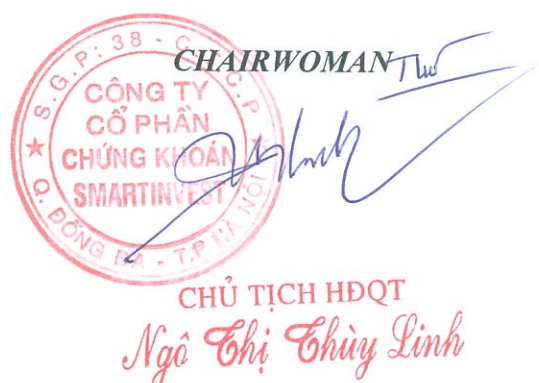 CHAIRWOMAN
S.G.P: 38 -
CÔNG TY
CỔ PHẦN
CHỨNG KHOÁN
SMARTINVEST
Q. ĐỐNG ĐA - T.P HÀ NỘI
CHỦ TỊCH HĐQT
Ngô Thị Thùy Linh